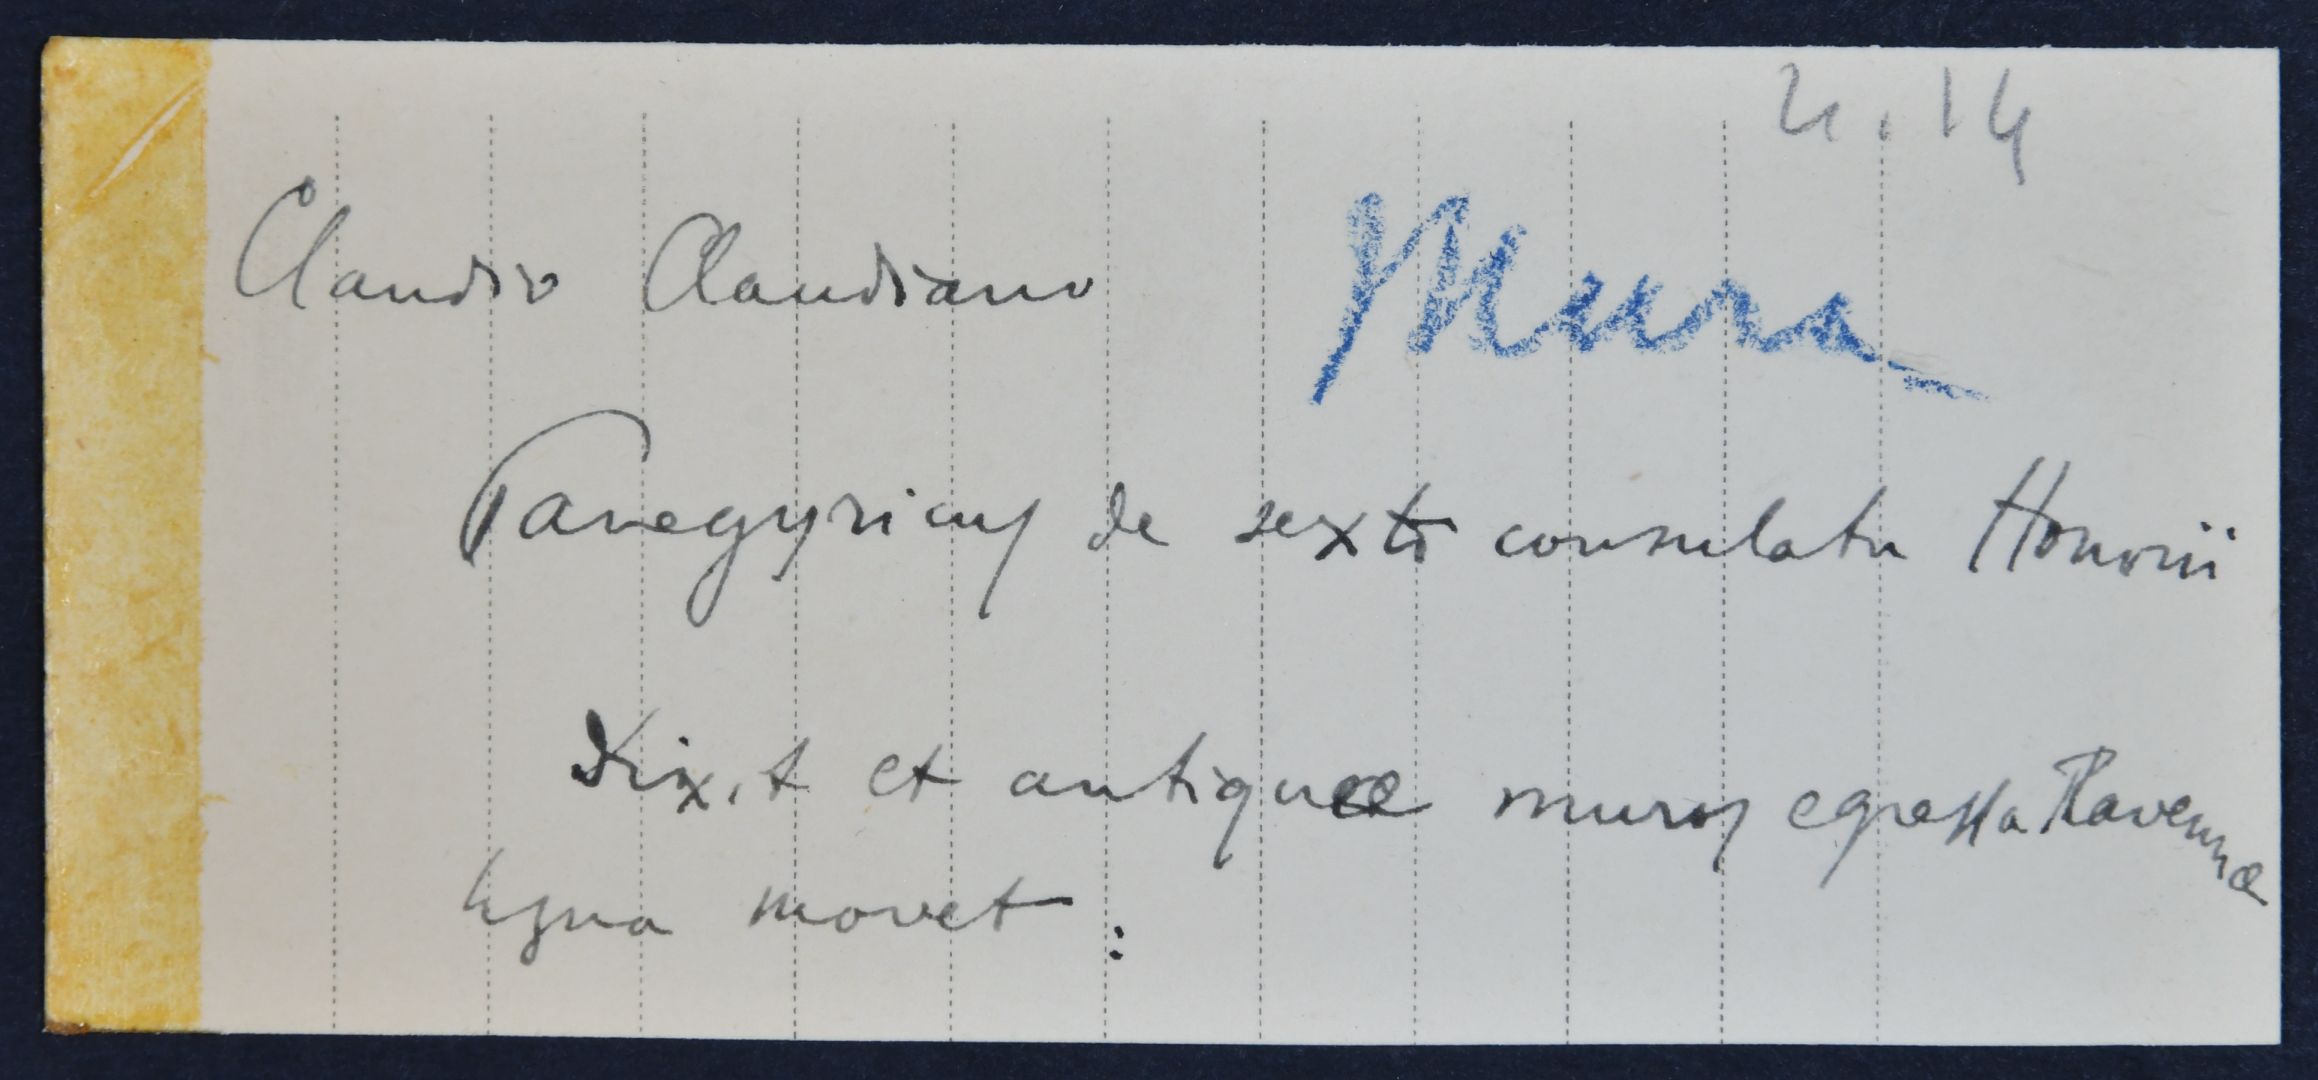 n. 14
Claudio Claudiano
Mura
Panegyricus de sexto consulatu Honorii
Dixit et antiquae muros egressa Ravennae
signa movet :